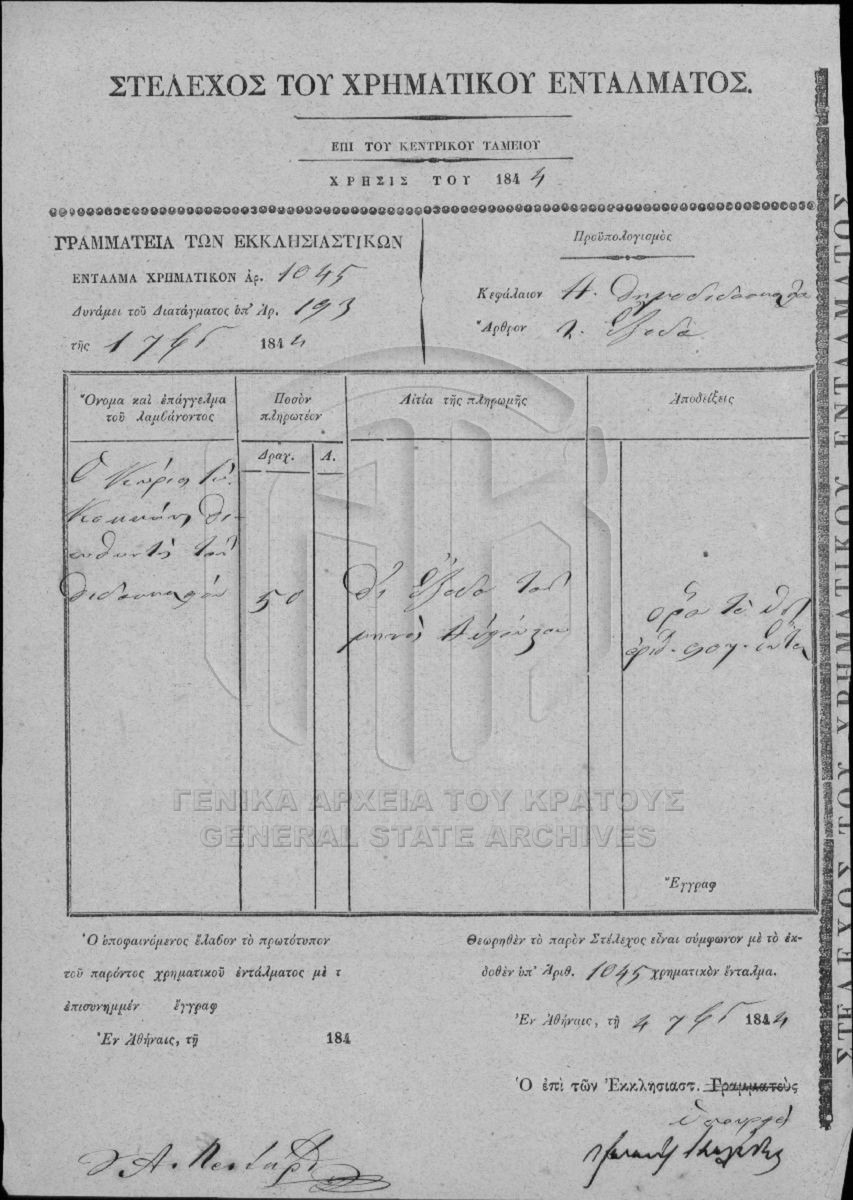 ΣΤΕΛΕΧΟΣ ΤΟΥ ΧΡΗΜΑΤΙΚΟΥ ΕΝΤΑΛΜΑΤΟΣ.
ΕΠΙ ΤΟΥ ΚΕΝΤΡΙΚΟΥ ΤΑΜΕΙΟΥ
ΧΡΗΣΙΣ ΤΟΥ 1844
ΓΡΑΜΜΑΤΕΙΑ ΤΩΝ ΕΚΚΛΗΣΙΑΣΤΙΚΩΝ
ΕΝΤΑΛΜΑ ΧΡΗΜΑΤΙΚΟΝ ἀρ. 1045
Δυνάμει τοῦ Διατάγματος ὑπ' Ἀρ. 193
τῆς 1 7βρ 1844
Προϋπολογισμὸς
Κεφάλαιον Α.
Ἄρθρον 2. Ἔξοδα
Ὄνομα καὶ ἐπάγγελμα
τοῦ λαμβάνοντος
Ποσὸν
πληρωτέον
Αἰτία τῆς πληρωμῆς
Ἀποδείξεις
Δραχ. Λ.
Ὁ Κύριος
Κοκκώνης δι-
ευθυντὴς τοῦ
διδασκαλ
50
δι' ἔξοδα τοῦ
μηνὸς Αὐγούστου
ὅρα τὸ
Ἔγγραφ
Ὁ ὑποφαινόμενος ἔλαβον τὸ πρωτότυπον
τοῦ παρόντος χρηματικοῦ ἐντάλματος μὲ τ
ἐπισυνημμέν ἔγγραφ
Ἐν Ἀθήναις, τῇ 184
Θεωρηθὲν τὸ παρὸν Στέλεχος εἶναι σύμφωνον μὲ τὸ ἐκ-
δοθὲν ὑπ' Ἀριθ. 1045 χρηματικὸν ἔνταλμα.
Ἐν Ἀθήναις, τῇ 4 7βρ 1844
Ὁ ἐπὶ τῶν Ἐκκλησιαστ. Γραμματεὺς
Ὑπουργὸς
ΣΤΕΛΕΧΟΣ ΤΟΥ ΧΡΗΜΑΤΙΚΟΥ ΕΝΤΑΛΜΑΤΟΣ
ΓΕΝΙΚΑ ΑΡΧΕΙΑ ΤΟΥ ΚΡΑΤΟΥΣ
GENERAL STATE ARCHIVES